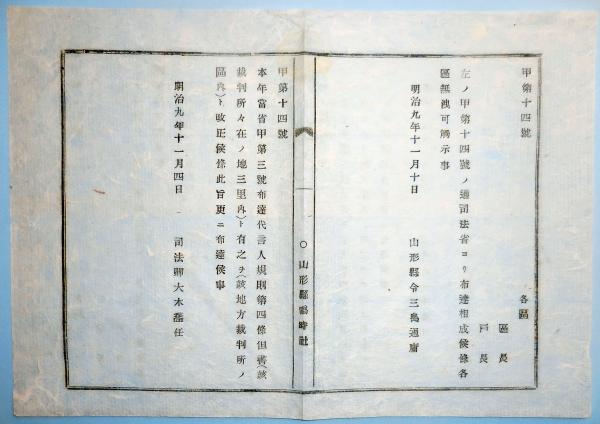 甲第十四號
各區
區長
戸長
左ノ甲第十四號ノ通司法省ヨリ布達相成候條各
區無洩可觸示事
明治九年十一月十日
山形縣令三島通庸
〇山形縣鳴時社
甲第十四號
本年當省甲第三號布達代言人規則第四條但書(該
裁判所々在ノ地三里内)ト有之ヲ(該地方裁判所ノ
區内)ト改正候條此旨更ニ布達候事
明治九年十一月四日
司法卿大木喬任